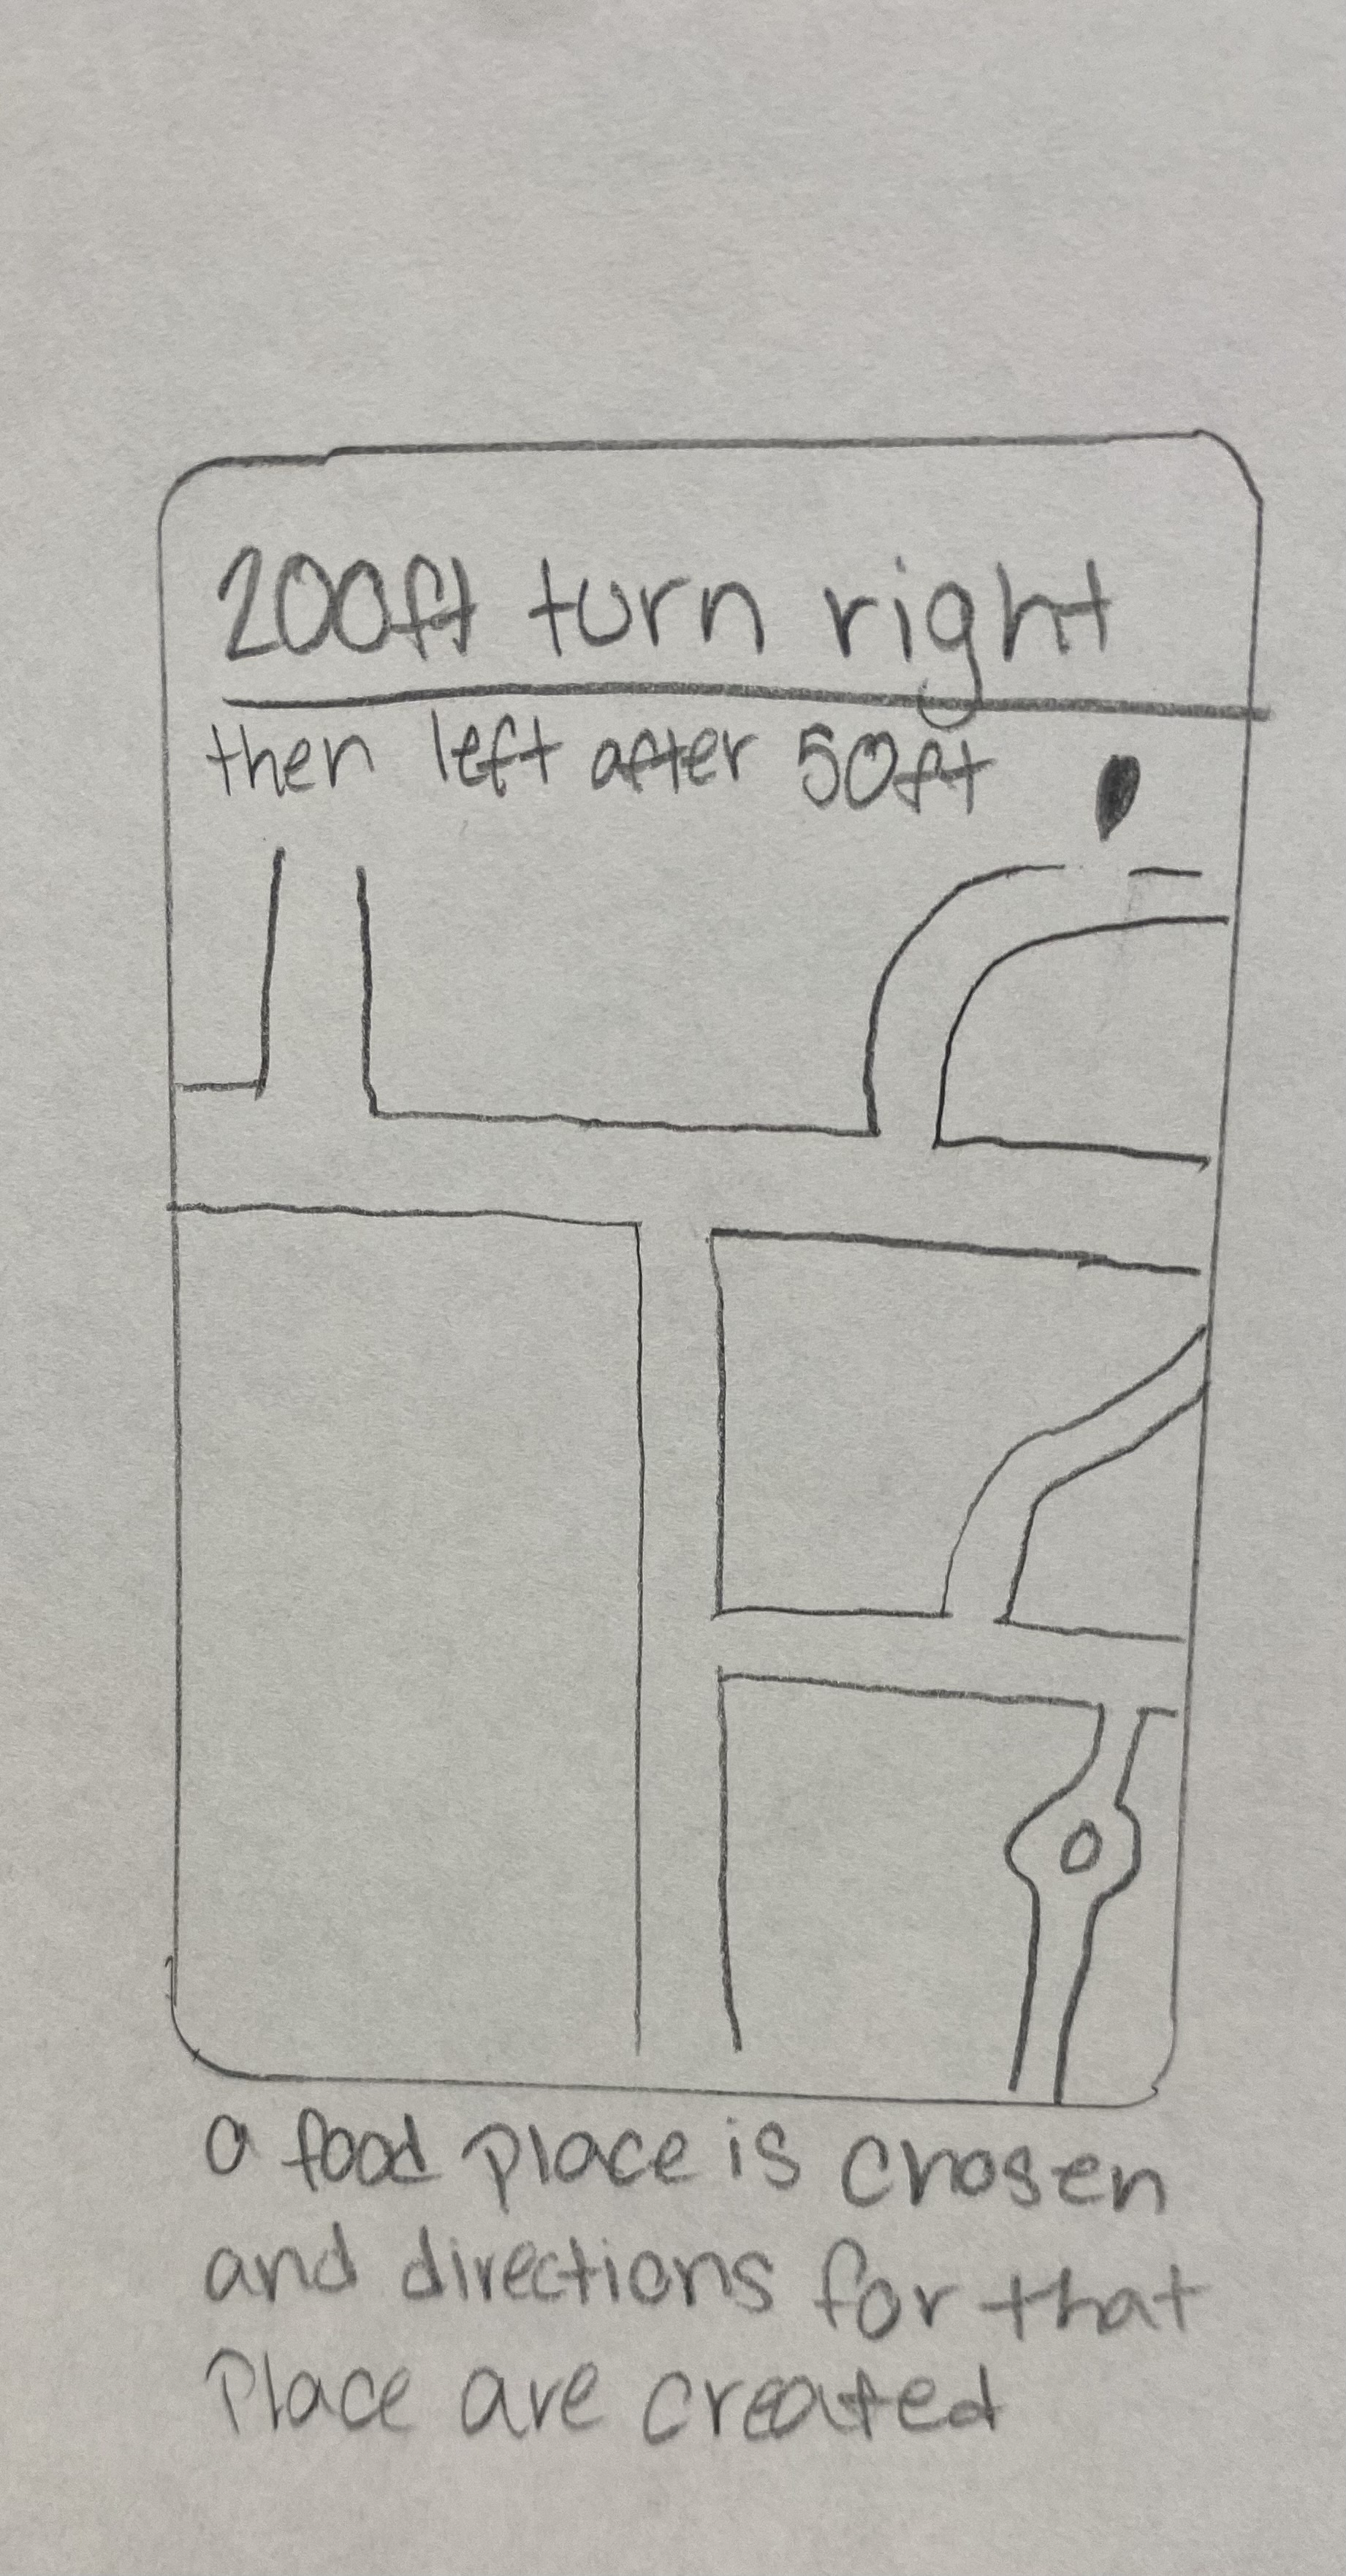 200ft turn right
then left after 50ft
a food place is chosen
and directions for that
Place are created